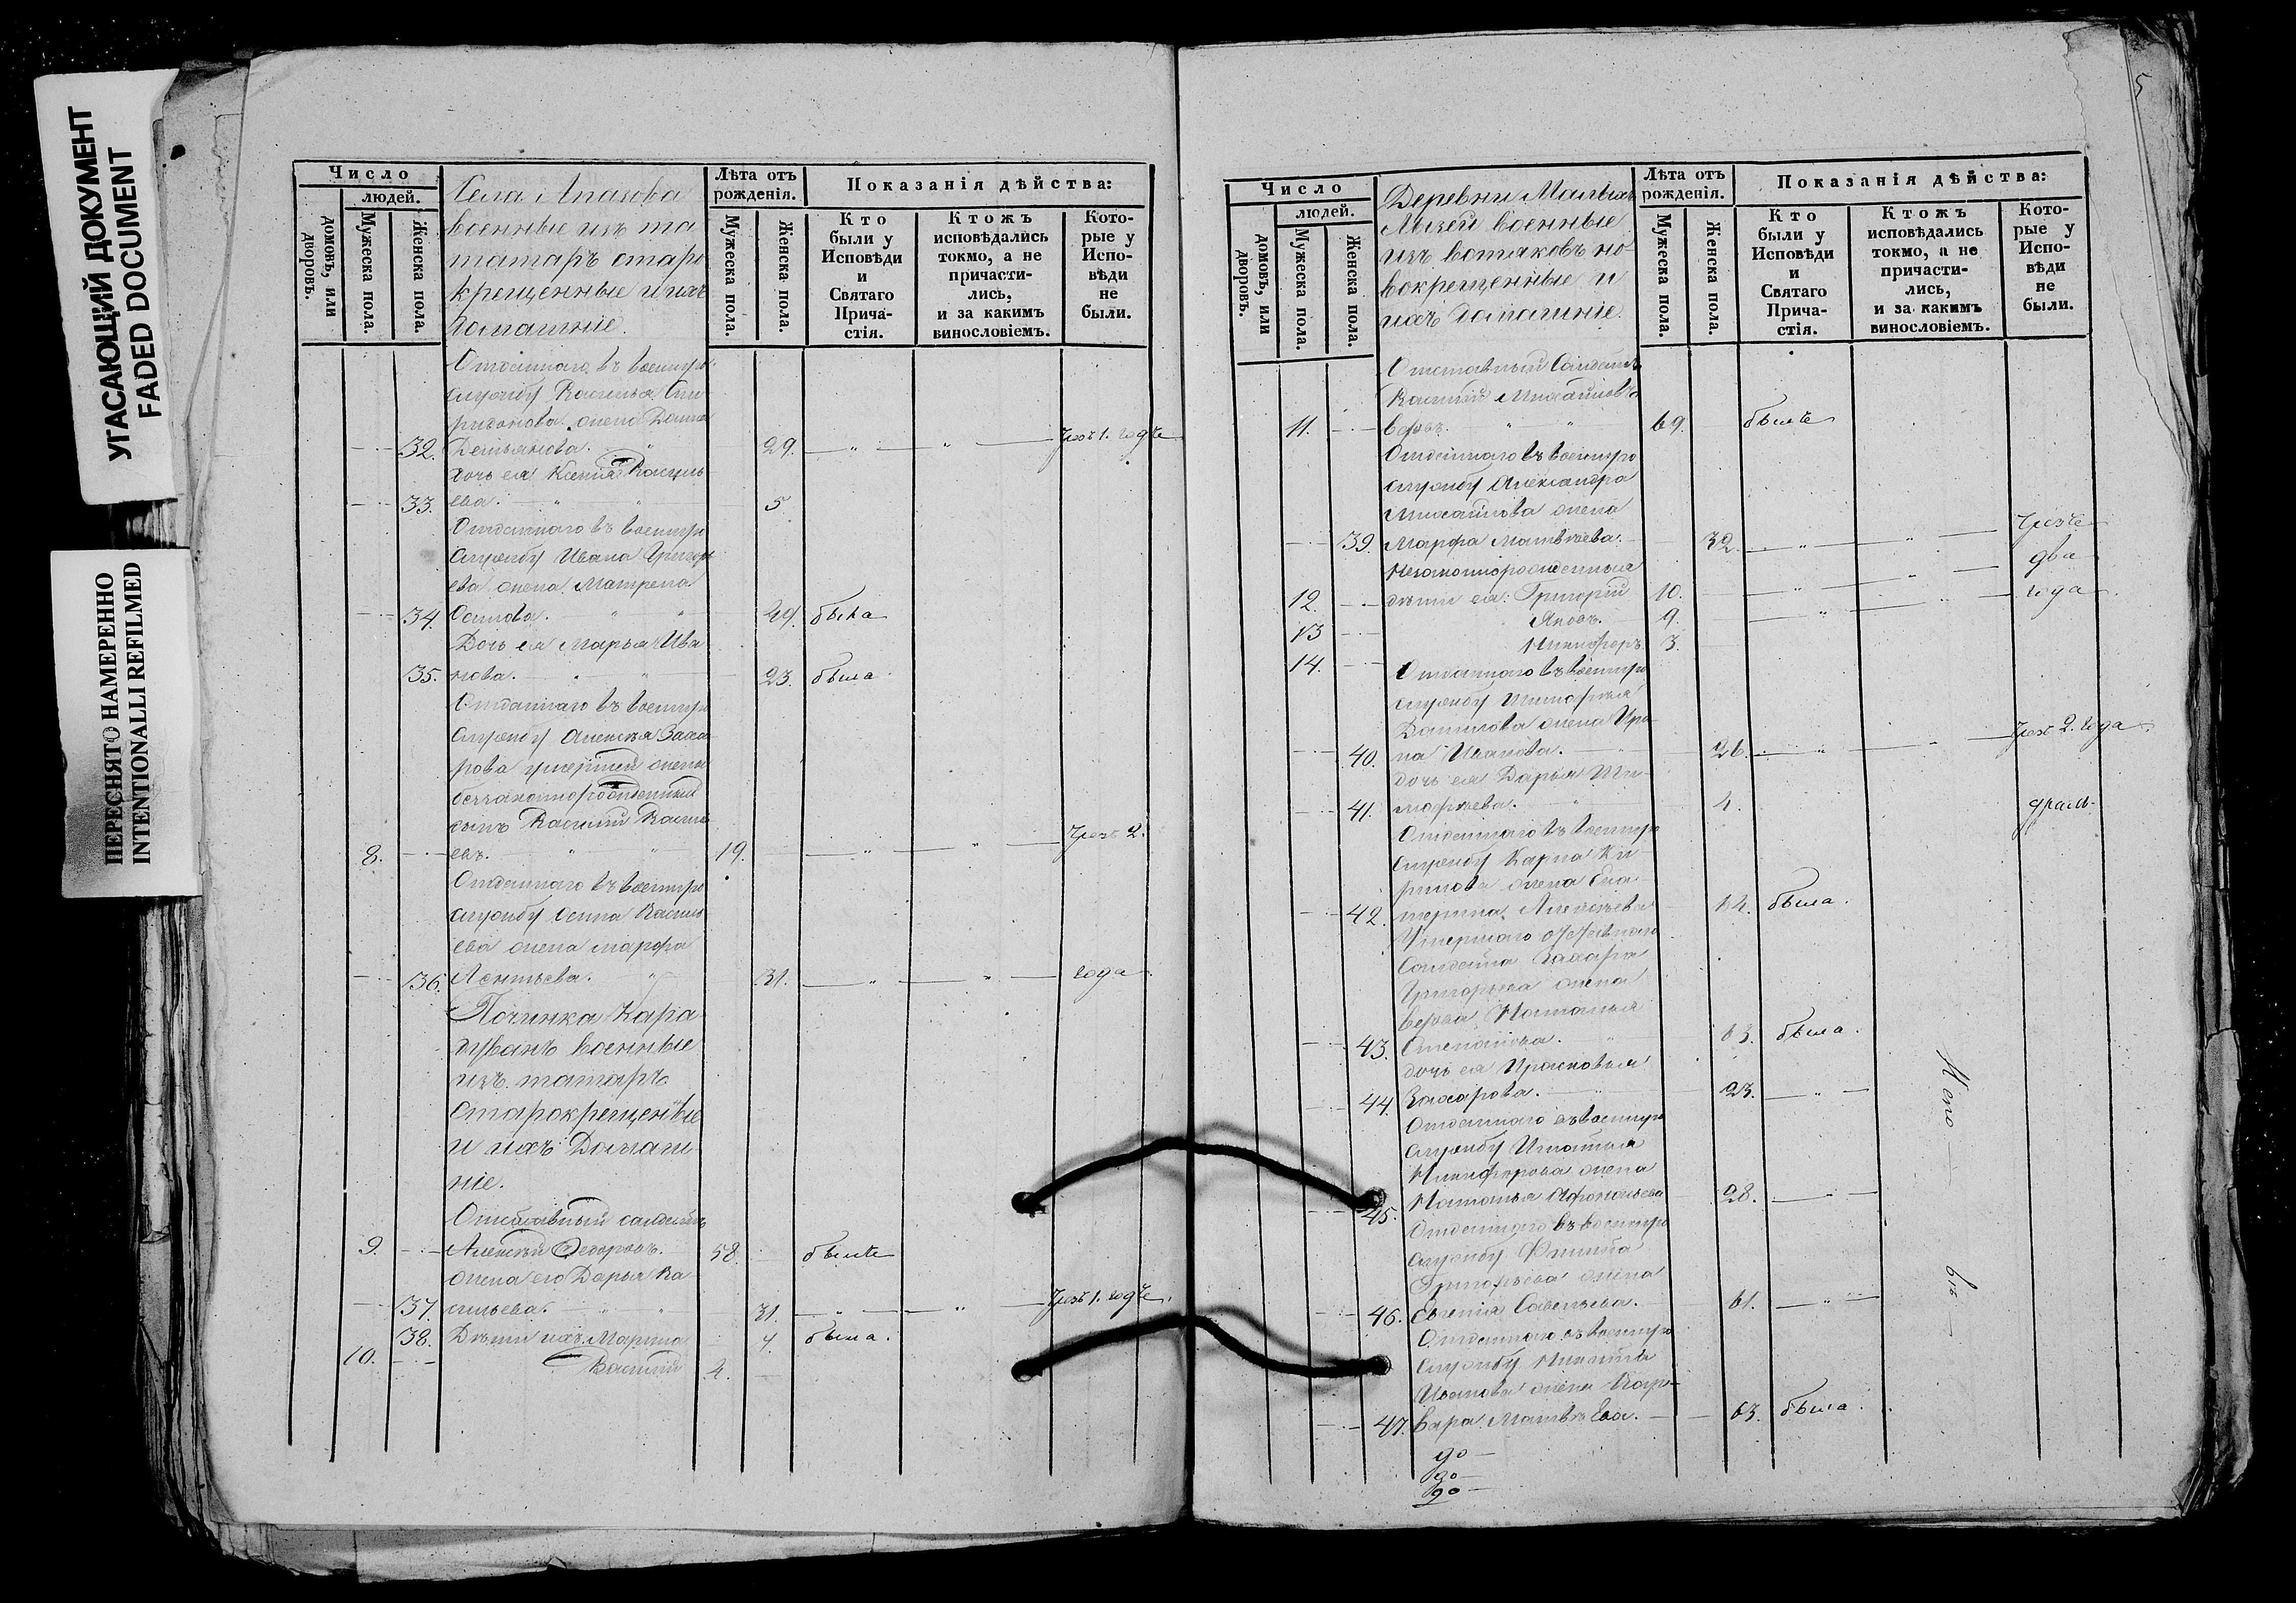 УГАСАЮЩИЙ ДОКУМЕНТ
FADED DOCUMENT
ПЕРЕСНЯТО НАМЕРЕННО
INTENTIONALLI REFILMED
Число
людей.
домовъ, или дворовъ.
Мужеска пола.
Женска пола.
Села Апазова
военные изъ та
татаръ старо
крещенные и ихъ
домашніе.
Лѣта отъ рожденія.
Мужеска пола.
Женска пола.
Показанія дѣйства:
Кто были у Исповѣди и Святаго Прича-стія.
Ктожъ исповѣдались токмо, а не причасти-лись, и за какимъ винословіемъ.
Кото-рые у Испо-вѣди не были.
Отданнаго въ военную
службу Василья Спи
ридонова жена
32. Демьянова. 29. чрезъ 1. годъ
дочь ея Ксенія Василь
33. ева. 5
Отданнаго въ военную
службу Ивана Григорь
ева жена Матрена
34. Осипова. 49. была
Дочь ея Марья Ива
35. нова. 23. была
Отданнаго въ военную
службу Алексѣя Заха
рова умершей жены
беззаконнорожденный
сынъ Василий Василь
8. евъ. 19. чрезъ 2.
Отданнаго въ военную
службу Осипа Василь
ева жена Марфа
36. Леонтьева. 31. года
Починка Кара
дуванъ военные
изъ татаръ
старокрещенные
и ихъ Домаш
ніе.
Отставный солдатъ
9. Алексѣй Ѳедоровъ. 58. былъ
жена его Дарья Ва
37. сильева. 31. чрезъ 1. годъ.
38. Дѣти ихъ: Марина 4. была.
10. Василий 2.
5
Число
людей.
домовъ, или дворовъ.
Мужеска пола.
Женска пола.
Деревни
военные
изъ вотяковъ но
вокрещенные и
ихъ домашніе.
Лѣта отъ рожденія.
Мужеска пола.
Женска пола.
Показанія дѣйства:
Кто были у Исповѣди и Святаго Прича-стія.
Ктожъ исповѣдались токмо, а не причасти-лись, и за какимъ винословіемъ.
Кото-рые у Испо-вѣди не были.
Отставный Солдатъ
Василий Михайловъ
11. вдовъ. 69. былъ
Отданнаго въ военную
службу Александра
Михайлова жена
39. Марфа Матвѣева. 32. чрезъ
Незаконнорожденныя два
12. дѣти ея: Григорій 10. года
13 Яковъ. 9.
14. Никифоръ 3.
Отданнаго въ военную
службу Тимофѣя
Данилова жена Ири
40. на Иванова. 26. чрезъ 2. года.
дочь ея Дарья Ти
41. мофѣева. 2.
Отданнаго въ военную
службу Карпа Ки
рилова жена Ека
42. терина Алексѣева 62. была.
Умершаго отставнаго
Солдата Захара
Григорьева жена
вдова Наталья
43. Степанова. 63. была.
дочь ея Прасковья
44. Захарова. 23.
Отданнаго въ военную
службу Игнатья
Никифорова жена
45. Наталья Афонасьева 28.
Отданнаго въ военную
службу Филипа
Григорьева жена
46. Евгенія Савельева. 61.
Отданнаго въ военную
службу Никиты
Иванова жена
47. вара Матвѣева. 63. была.